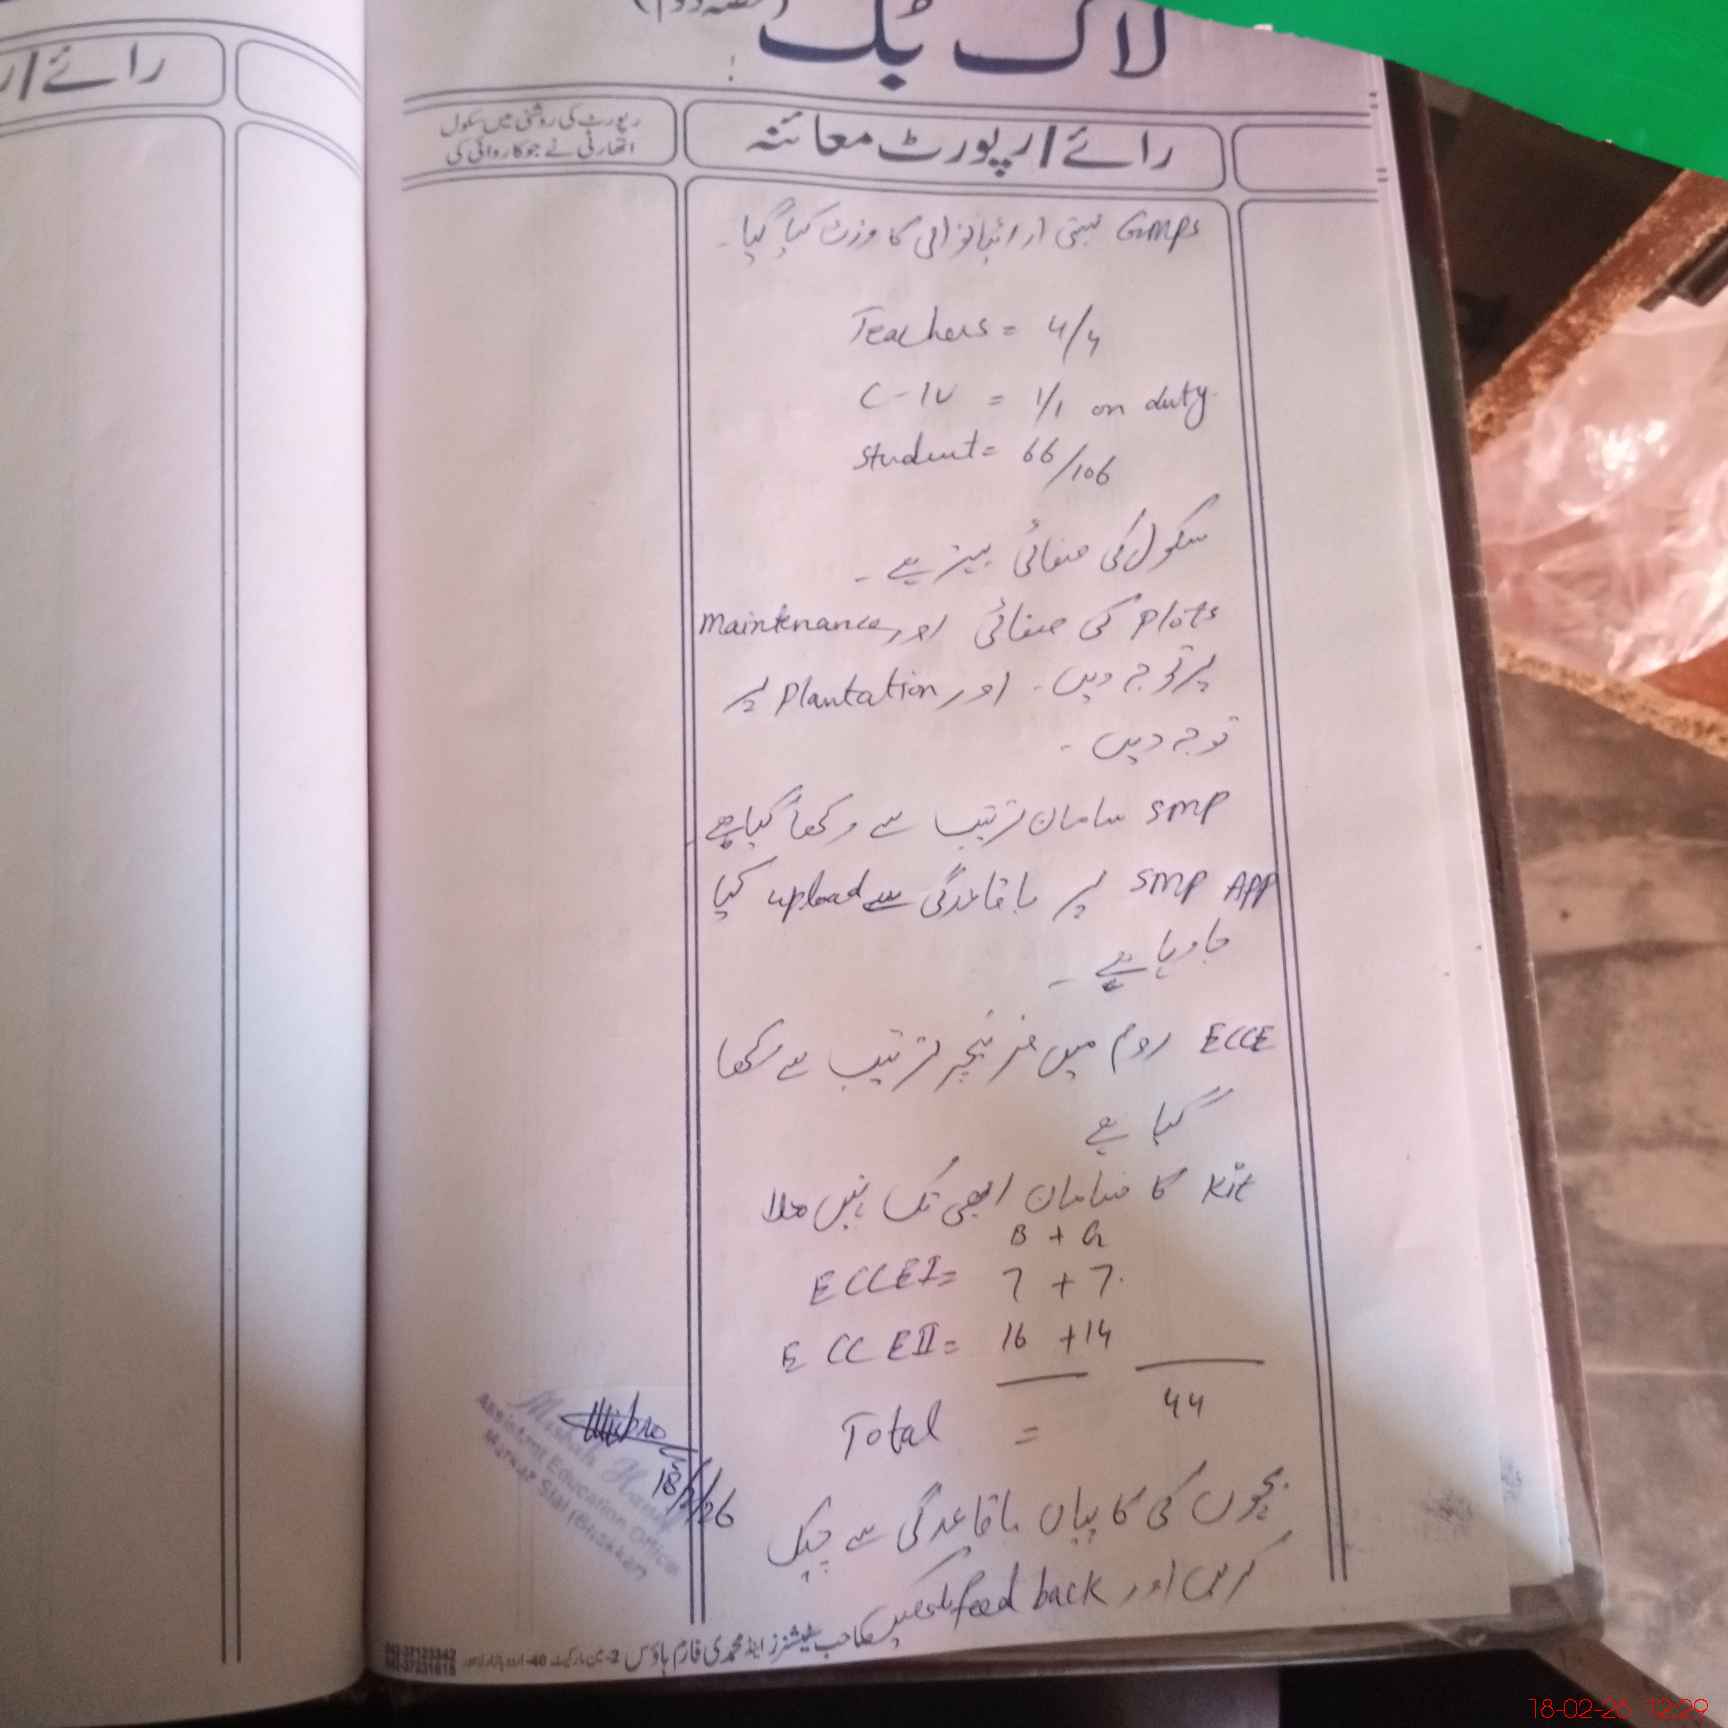 لاگ بک
(حصہ دوم)
رائے / ر
رائے / رپورٹ معائنہ
رپورٹ کی روشنی میں سکول
اتھارٹی نے جو کاروائی کی
GMPS بستی کا وزٹ کیا گیا۔
Teachers = 4/4
C-IV = 1/1 on duty.
Student = 66/106
سکول کی صفائی بہتر ہے۔
Plots کی صفائی اور Maintenance
پر توجہ دیں۔ اور Plantation پر
توجہ دیں۔
SMP سامان ترتیب سے رکھا گیا ہے
SMP APP پر باقاعدگی سے upload کیا
جا رہا ہے۔
ECCE روم میں فرنیچر ترتیب سے رکھا
گیا ہے
Kit کا سامان ابھی تک نہیں ملا
B + G
ECCEI = 7 + 7.
ECCEII = 16 + 14
Total = 44
بچوں کی کاپیاں باقاعدگی سے چیک
کریں اور feed back لکھیں
18/2/26
Misbah
Assistant Education Officer
Markaz Sial (Bhakkar)
042-37123342
042-37231618
18-02-26 12:29